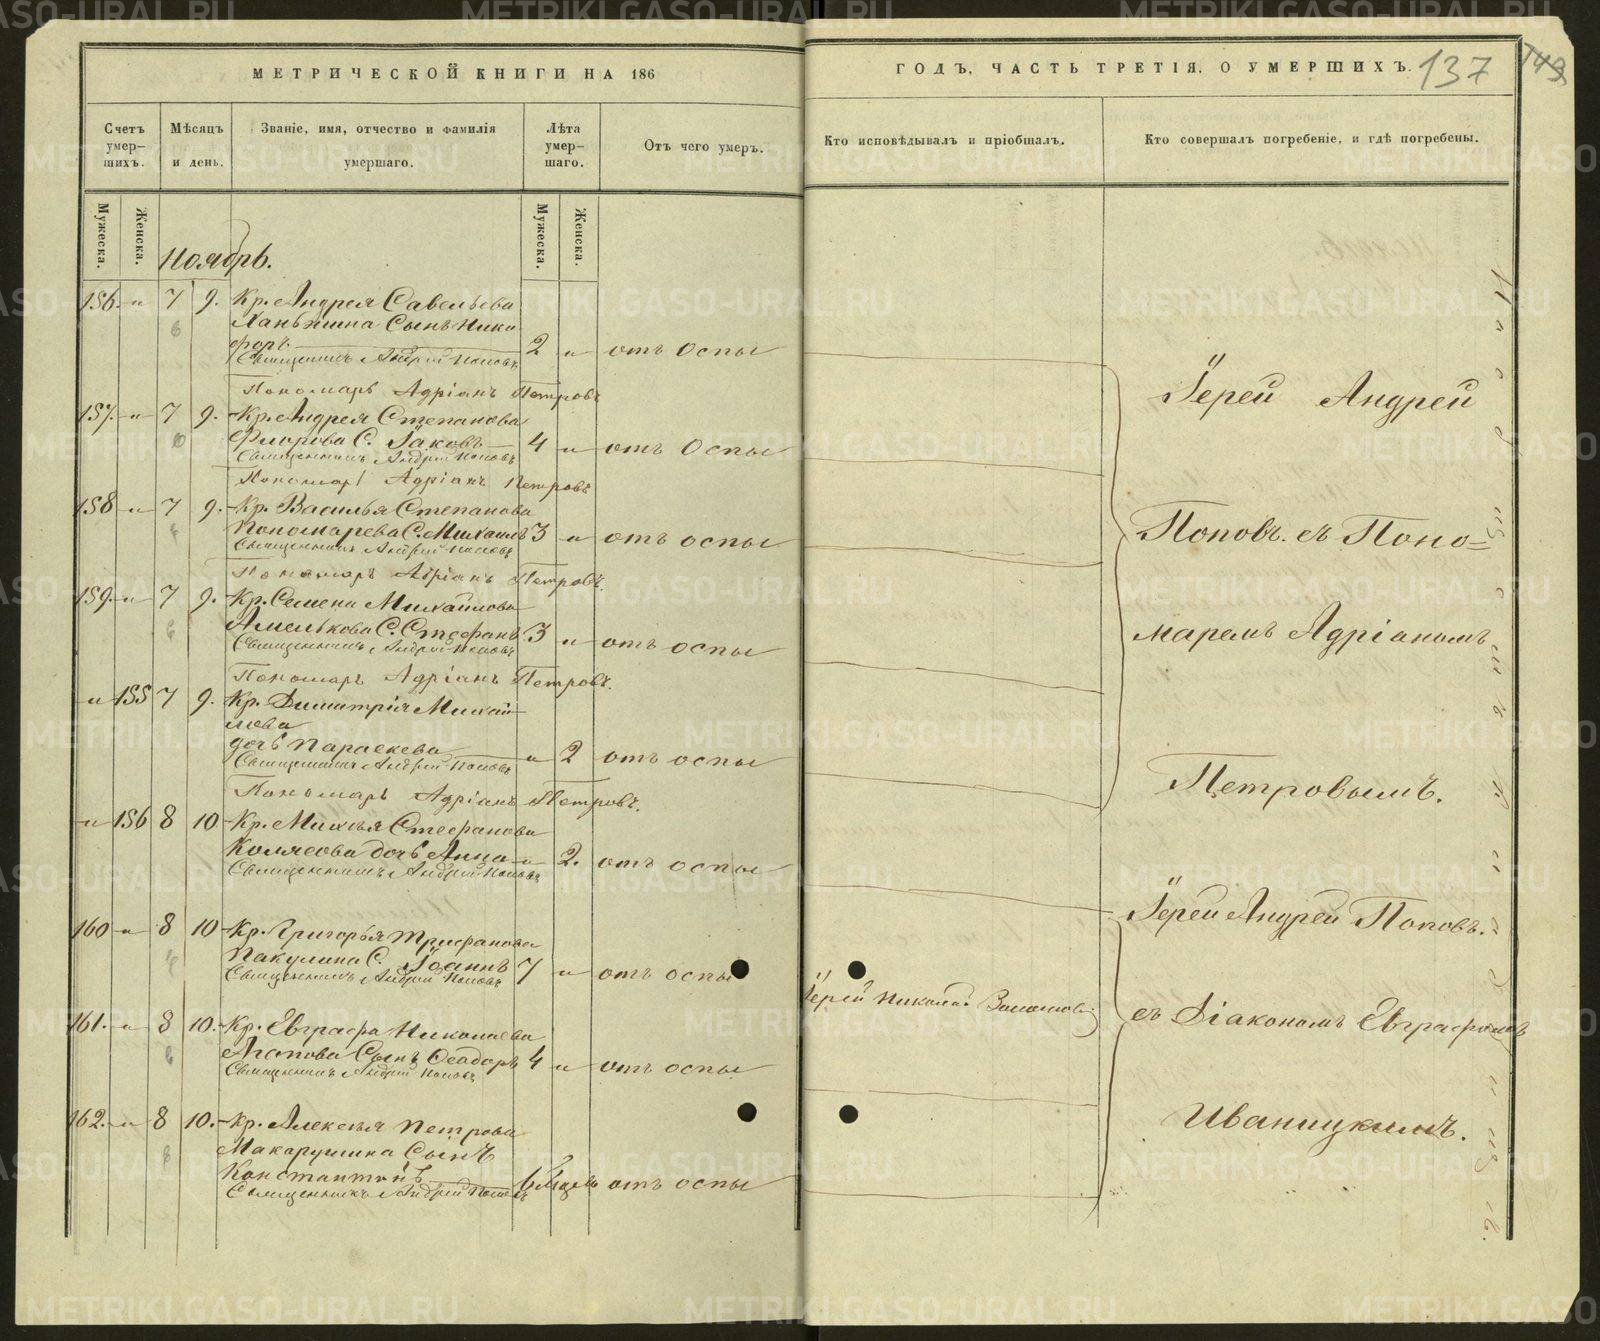 МЕТРИЧЕСКОЙ КНИГИ НА 186
ГОДЪ, ЧАСТЬ ТРЕТІЯ, О УМЕРШИХЪ.
137
149
Счетъ умер-
шихъ.
Мѣсяцъ
и день.
Званіе, имя, отчество и фамилія
умершаго.
Лѣта
умер-
шаго.
Отъ чего умеръ.
Кто исповѣдывалъ и пріобщалъ.
Кто совершалъ погребеніе, и гдѣ погребены.
Мужеска.
Женска.
Мужеска.
Женска.
Ноябрь.
156. „ 7 9. Кр. Андрея Савельева
Ханьжина Сынъ Ники
форъ 2 „ отъ Оспы
Священникъ Андрей Поповъ
Пономарь Адріанъ Петровъ
157. „ 7 9. Кр. Андрея Степанова
Флорова С. Іаковъ 4 „ отъ Оспы
Священникъ Андрей Поповъ
Пономарь Адріанъ Петровъ
158 „ 7 9. Кр. Василья Степанова
Пономарева С. Михаилъ 3 „ отъ оспы
Священникъ Андрей Поповъ
Пономарь Адріанъ Петровъ.
159. „ 7 9. Кр. Семена Михайлова
Амелькова С. Стефанъ 3 „ отъ оспы
Священникъ Андрей Поповъ
Пономарь Адріанъ Петровъ.
„ 155 7 9. Кр. Димитрія Михай
лова
дочь Параскева „ 2 отъ оспы
Священникъ Андрей Поповъ
Пономарь Адріанъ Петровъ.
„ 156 8 10 Кр. Михѣя Стефанова
Колясова дочь Анна „ 2. отъ оспы
Священникъ Андрей Поповъ
160 „ 8 10 Кр. Григорья Трифанова
Пакулина С. Іоаннъ 7 „ отъ оспы
Священникъ Андрей Поповъ
161. „ 8 10. Кр. Евграфа Николаева
Агапова Сынъ Ѳеадоръ 4 „ отъ оспы
Священникъ Андрей Поповъ
162. „ 8 10. Кр. Алексѣя Петрова
Макарушина Сынъ
Константинъ 6 Мѣсяцевъ отъ оспы
Священникъ Андрей Поповъ
Іерей Николай
Іерей Андрей
Поповъ. съ Поно=
маремъ Адріаномъ
Петровымъ.
Іерей Андрей Поповъ.
съ Діакономъ Евграфомъ
Иваницкимъ.
METRIKI.GASO-URAL.RU